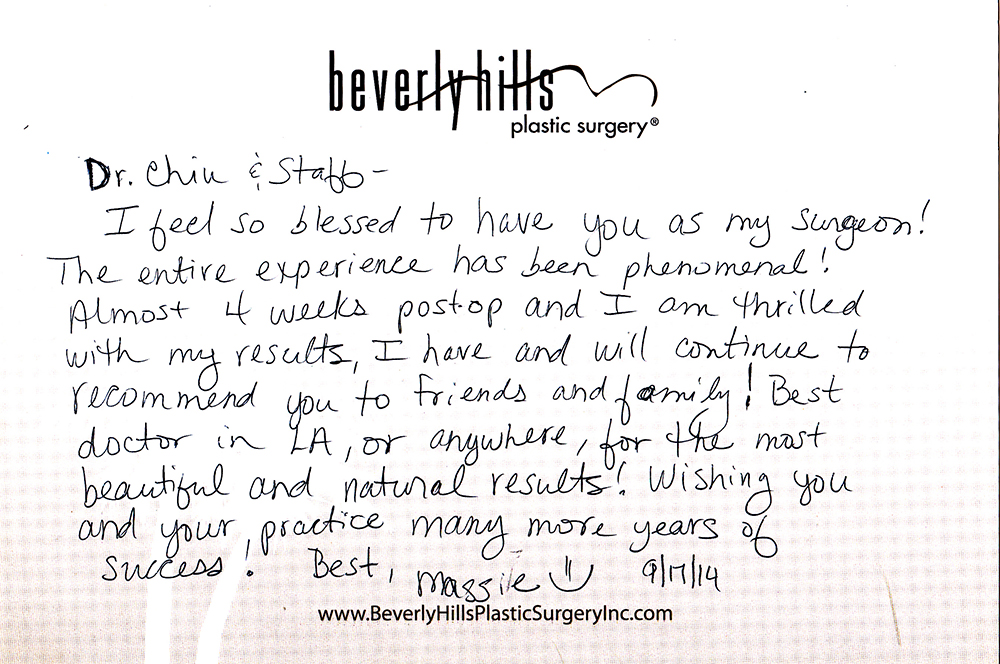 beverlyhills
plastic surgery®
Dr. Chiu & Staff -
I feel so blessed to have you as my surgeon!
The entire experience has been phenomenal!
Almost 4 weeks post-op and I am thrilled
with my results, I have and will continue to
recommend you to friends and family! Best
doctor in LA, or anywhere, for the most
beautiful and natural results! Wishing you
and your practice many more years of
success! Best, 9/17/14
www.BeverlyHillsPlasticSurgeryInc.com